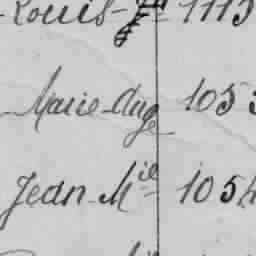 Louis-Jn 1113
Marie-Ange 105
Jean-Mie 1054